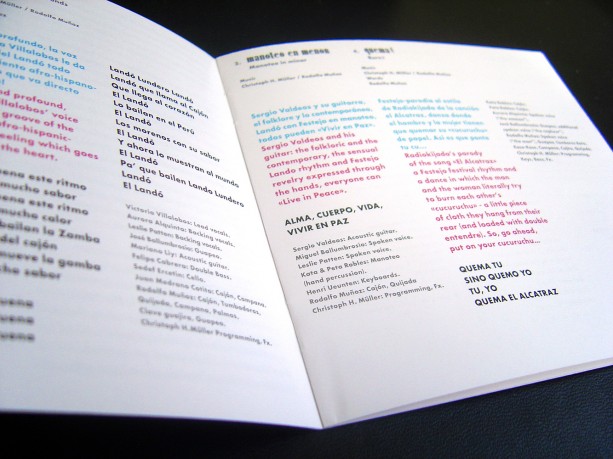 Müller / Rodolfo Muñoz
profundo, la voz
Villalobos le da
Landó todo
miento afro-hispano-
que va directo
and profound,
Villalobos' voice
groove of the
afro-hispanic-
feeling which goes
the heart.
buena este ritmo
mucho sabor
buena este ritmo
mucho calor
bailan la Zamba
del cajón
mueve la gamba
mucho sabor
buena
buena
buena
Landó Lundero Landó
Landó que llama el Cajón
Que llega al corazón
El Landó
Lo bailan en el Perú
El Landó
Los morenos con su sabor
El Landó
Y ahora lo muestran al mundo
El Landó
Pa' que bailen Landó Lundero
Landó
El Landó
Victoria Villalobos: Lead vocals.
Aurora Alquinta: Backing vocals.
Leslie Patten: Backing vocals.
José Ballumbrosio: Guapeo.
Mariano Liy: Acoustic guitar.
Felipe Cabrera: Double Bass.
Sedef Ercetin: Cello.
Juan Medrano Cotito: Cajón, Campana.
Rodolfo Muñoz: Cajón, Tumbadoras,
Quijada, Campana, Palmas.
Cleve guajira, Guapeo.
Christoph H. Müller: Programming, Fx.
manoteo en menor
Manoteo in minor
Music
Christoph H. Müller / Rodolfo Muñoz
Sergio Valdeos y su guitarra,
el folklore y lo contemporáneo.
Landó con Festejo en manoteo,
todos pueden «Vivir en Paz».
Sergio Valdeos and his
guitar: the folkloric and the
contemporary, the sensual
Lando rhythm and Festejo
revelry expressed through
the hands, everyone can
«Live in Peace».
ALMA, CUERPO, VIDA,
VIVIR EN PAZ
Sergio Valdeos: Acoustic guitar.
Miguel Ballumbrosio: Spoken voice.
Leslie Patten: Spoken voice.
Kata & Pete Robles: Manoteo
(hand percussion).
Henri Ueunten: Keyboards.
Rodolfo Muñoz: Cajón, Quijada
Christoph H. Müller: Programming, Fx.
quema!
Burn!
Music
Christoph H. Müller / Rodolfo Muñoz
Words
Rodolfo Muñoz
Festejo parodia al estilo
de Radiokijada de la canción
el Alcatraz, danza donde
el hombre y la mujer tienen
que quemar su «cucurucho»
de papel. Así es que ponte
tu co...
Radiokijada's parody
of the song «El Alcatraz»
a Festejo festival rhythm and
a dance in which the men
and the woman literally try
to burn each other's
«cucuruchu» - a little piece
of cloth they hang from their
rear (and loaded with double
entendre). So, go ahead,
put on your cucuruchu...
QUEMA TU
SINO QUEMO YO
TU, YO
QUEMA EL ALCATRAZ